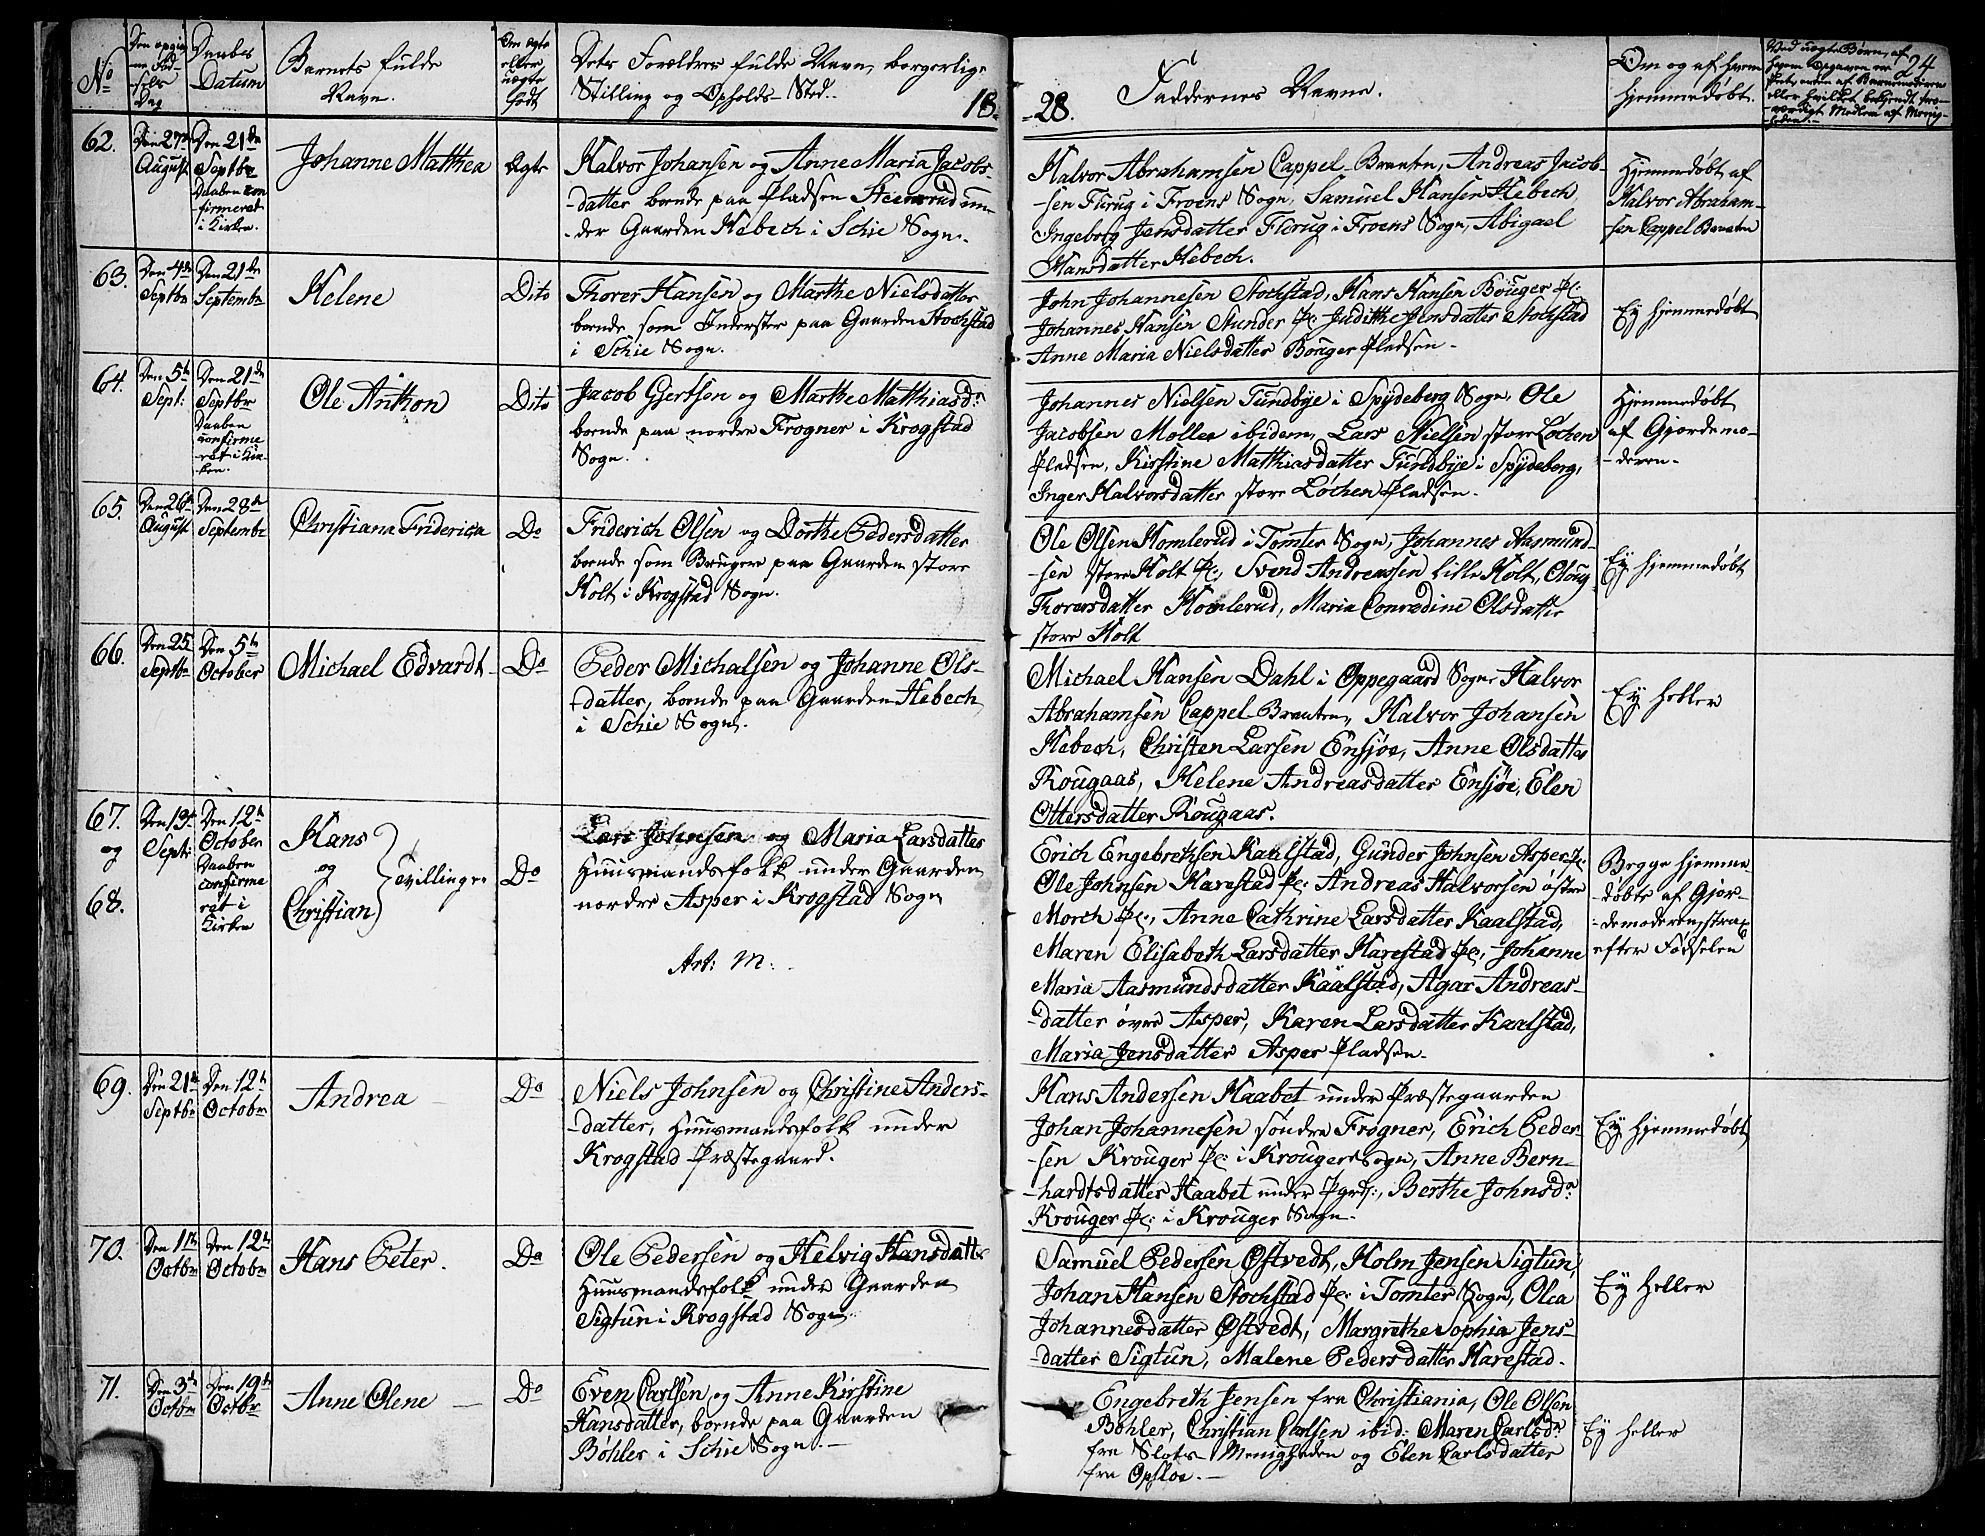 No
Den opgivne Fødsels Dag
Daabes Datum
Barnets fulde Navn.
Om ægte eller uægte født
Dets Forældres fulde Navn, borgerlige
Stilling og Opholds-Sted.
18-
-28.
Faddernes Navne.
Om og af hvem
hjemmedøbt.
24
62.
Den 27de
August
Den 21de
Septbr
Daaben con-
firmeret
i Kirken.
Johanne Matthea
Ægte
Halvor Johansen og Anne Maria Jacobs-
-datter boende paa Pladsen Steensrud un-
-der Gaarden Hebech i Schie Sogn.
Halvor Abrahamsen Cappel-Braaten, Andreas Jacob-
-sen Furug i Froens Sogn, Samuel Hansen Hebech,
Ingeborg Jensdatter Florug i Froens Sogn, Abigael
Hansdatter Hebech.
Hjemmedøbt af
Halvor Abraham-
-sen Cappel Braaten
63.
Den 4de
Septbr
Den 21de
Septembr
Helene
Dito
Thorer Hansen og Marthe Nielsdatter
boende som Inderster paa Gaarden Stochstad
i Schie Sogn.
John Johannesen Stochstad, Hans Hansen Bouger Pl:
Johannes Hansen Stunder Pl: Judithe Jensdatter Stochstad
Anne Maria Nielsdatter Bouger Pladsen.
Ey hjemmedøbt
64.
Den 5te
Sept:
Den 21de
Septbr
Daaben
confirme
-ret i Kir-
-ken.
Ole Anthon
Dito
Jacob Gjertsen og Marthe Matthiasdr
boende paa nordre Frogner i Krogstad
Sogn.
Johannes Nielsen Tundbye i Spydeberg Sogn, Ole
Jacobsen Moller ibidem, Lars Nielsen store Løchen
Pladsen, Kirstine Matthiasdatter Tundbye i Spydeberg,
Inger Halvorsdatter store Løchen Pladsen.
Hjemmedøbt
af Gjordemo-
-deren.
65.
Den 26de
August
Den 28de
Septembr
Christiana Friderica
Do
Friderich Olsen og Dorthe Pedersdatter
boende som Brugere paa Gaarden store
Holt i Krogstad Sogn.
Ole Olsen Homlerud i Tomter Sogn, Johannes Aasmund-
-sen store Holt Pl:, Svend Andreassen lille Holt, Oloug
Thoresdatter Homlerud, Maria Conradine Olsdatter
store Holt
Ey hjemmedøbt
66.
Den 25
Septbr
Den 5te
October
Michael Edvardt
Do
Peder Michalsen og Johanne Ols-
-datter, boende paa Gaarden Hebech
i Schie Sogn.
Michael Hansen Dahl i Oppegaard Sogn, Halvor
Abrahamsen Cappel-Braaten, Halvor Johansen
Hebech, Christen Larsen Ensjøe, Anne Olsdatter
Rougaas, Helene Andreasdatter Ensjøe, Elen
Ottersdatter Rougaas.
Ey heller
67.
og
68.
Den 13de
Sept:
Den 12te
October
Daaben
confirme
ret i
Kirken
Hans
og
Christian
Tvillinger
Do
Lars Johnsen og Maria Larsdatter
Huusmandsfolk under Gaarden
nordre Asper i Krogstad Sogn
Art: M:
Erich Engebrethsen Kaalstad, Gunder Johnsen Asper Pl:
Ole Johnsen Harestad Pl: Andreas Halvorsen østre
Morch Pl:, Anne Cathrine Larsdatter Kaalstad,
Maren Elisabeth Larsdatter Harestad Pl:, Johanne
Maria Aasmundsdatter Kaalstad, Agar Andreas-
-datter øvre Asper, Karen Larsdatter Kaalstad,
Maria Jensdatter Asper Pladsen.
Begge hjemme
-døbte af Gjor-
-demoderen strax
efter Fødselen
69.
Den 21de
Septbr
Den 12te
Octobr
Andrea
Do
Niels Johnsen og Christine Anders-
-datter, Huusmandsfolk under
Krogstad Præstegaard.
Hans Andersen Haabet under Præstegaarden
Johan Johannesen søndre Frogner, Erich Peder-
-sen Krouger Pl: i Krouger Sogn, Anne Bern-
hardtsdatter Haabet under Pgrd:, Berthe Johnsdr
Krouger Pl: i Krouger Sogn.
Ey hjemmedøbt
70.
Den 1te
Octbr
Den 12te
Octobr
Hans Peter.
Do
Ole Pedersen og Helvig Hansdatter
Huusmandsfolk under Gaarden
Sigtun i Krogstad Sogn.
Samuel Pedersen Østvedt, Holm Jensen Sigtun,
Johan Hansen Stochstad Pl: i Tomter Sogn, Olea
Johannesdatter Østvedt, Margrethe Sophia Jens-
-datter Sigtun, Malene Pedersdatter Harestad.
Ey heller
71.
Den 3de
Octobr
Den 19de
Octbr
Anne Olene
Do
Even Carlsen og Anne Kirstine
Hansdatter, boende paa Gaarden
Bøhler i Schie Sogn.
Engebreth Jensen fra Christiania, Ole Olsen
Bøhler, Christian Carlsen ibid: Maren Carlsdr
fra Slots-Menigheden og Elen Carlsdatter
fra Opsloe.
Ey heller